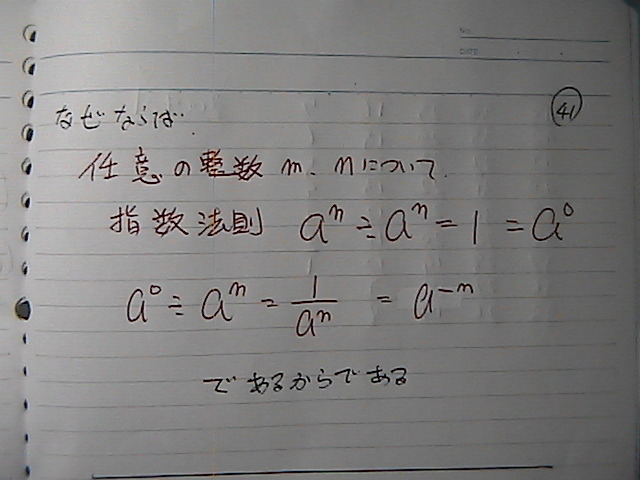 No.
DATE
41
なぜならば
任意の整数 m、nについて
指数法則 aⁿ÷aⁿ=1=a⁰
a⁰÷aⁿ=1/aⁿ=a⁻ⁿ
であるからである